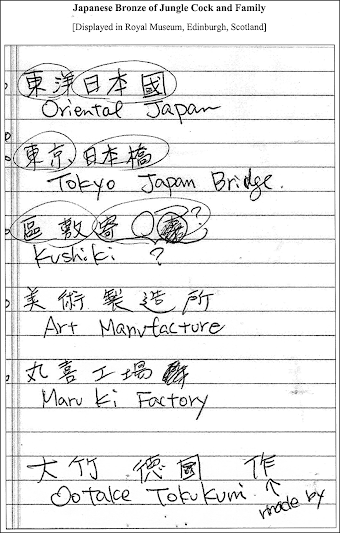 Japanese Bronze of Jungle Cock and Family
[Displayed in Royal Museum, Edinburgh, Scotland]
東洋日本國
Oriental Japan
東京日本橋
Tokyo Japan Bridge.
區敷寄 ?
Kushiki ?
美術製造所
Art Manufacture
丸喜工場
Maru Ki Factory
大竹 德國 作
Ootake Tokukuni ↑ made by